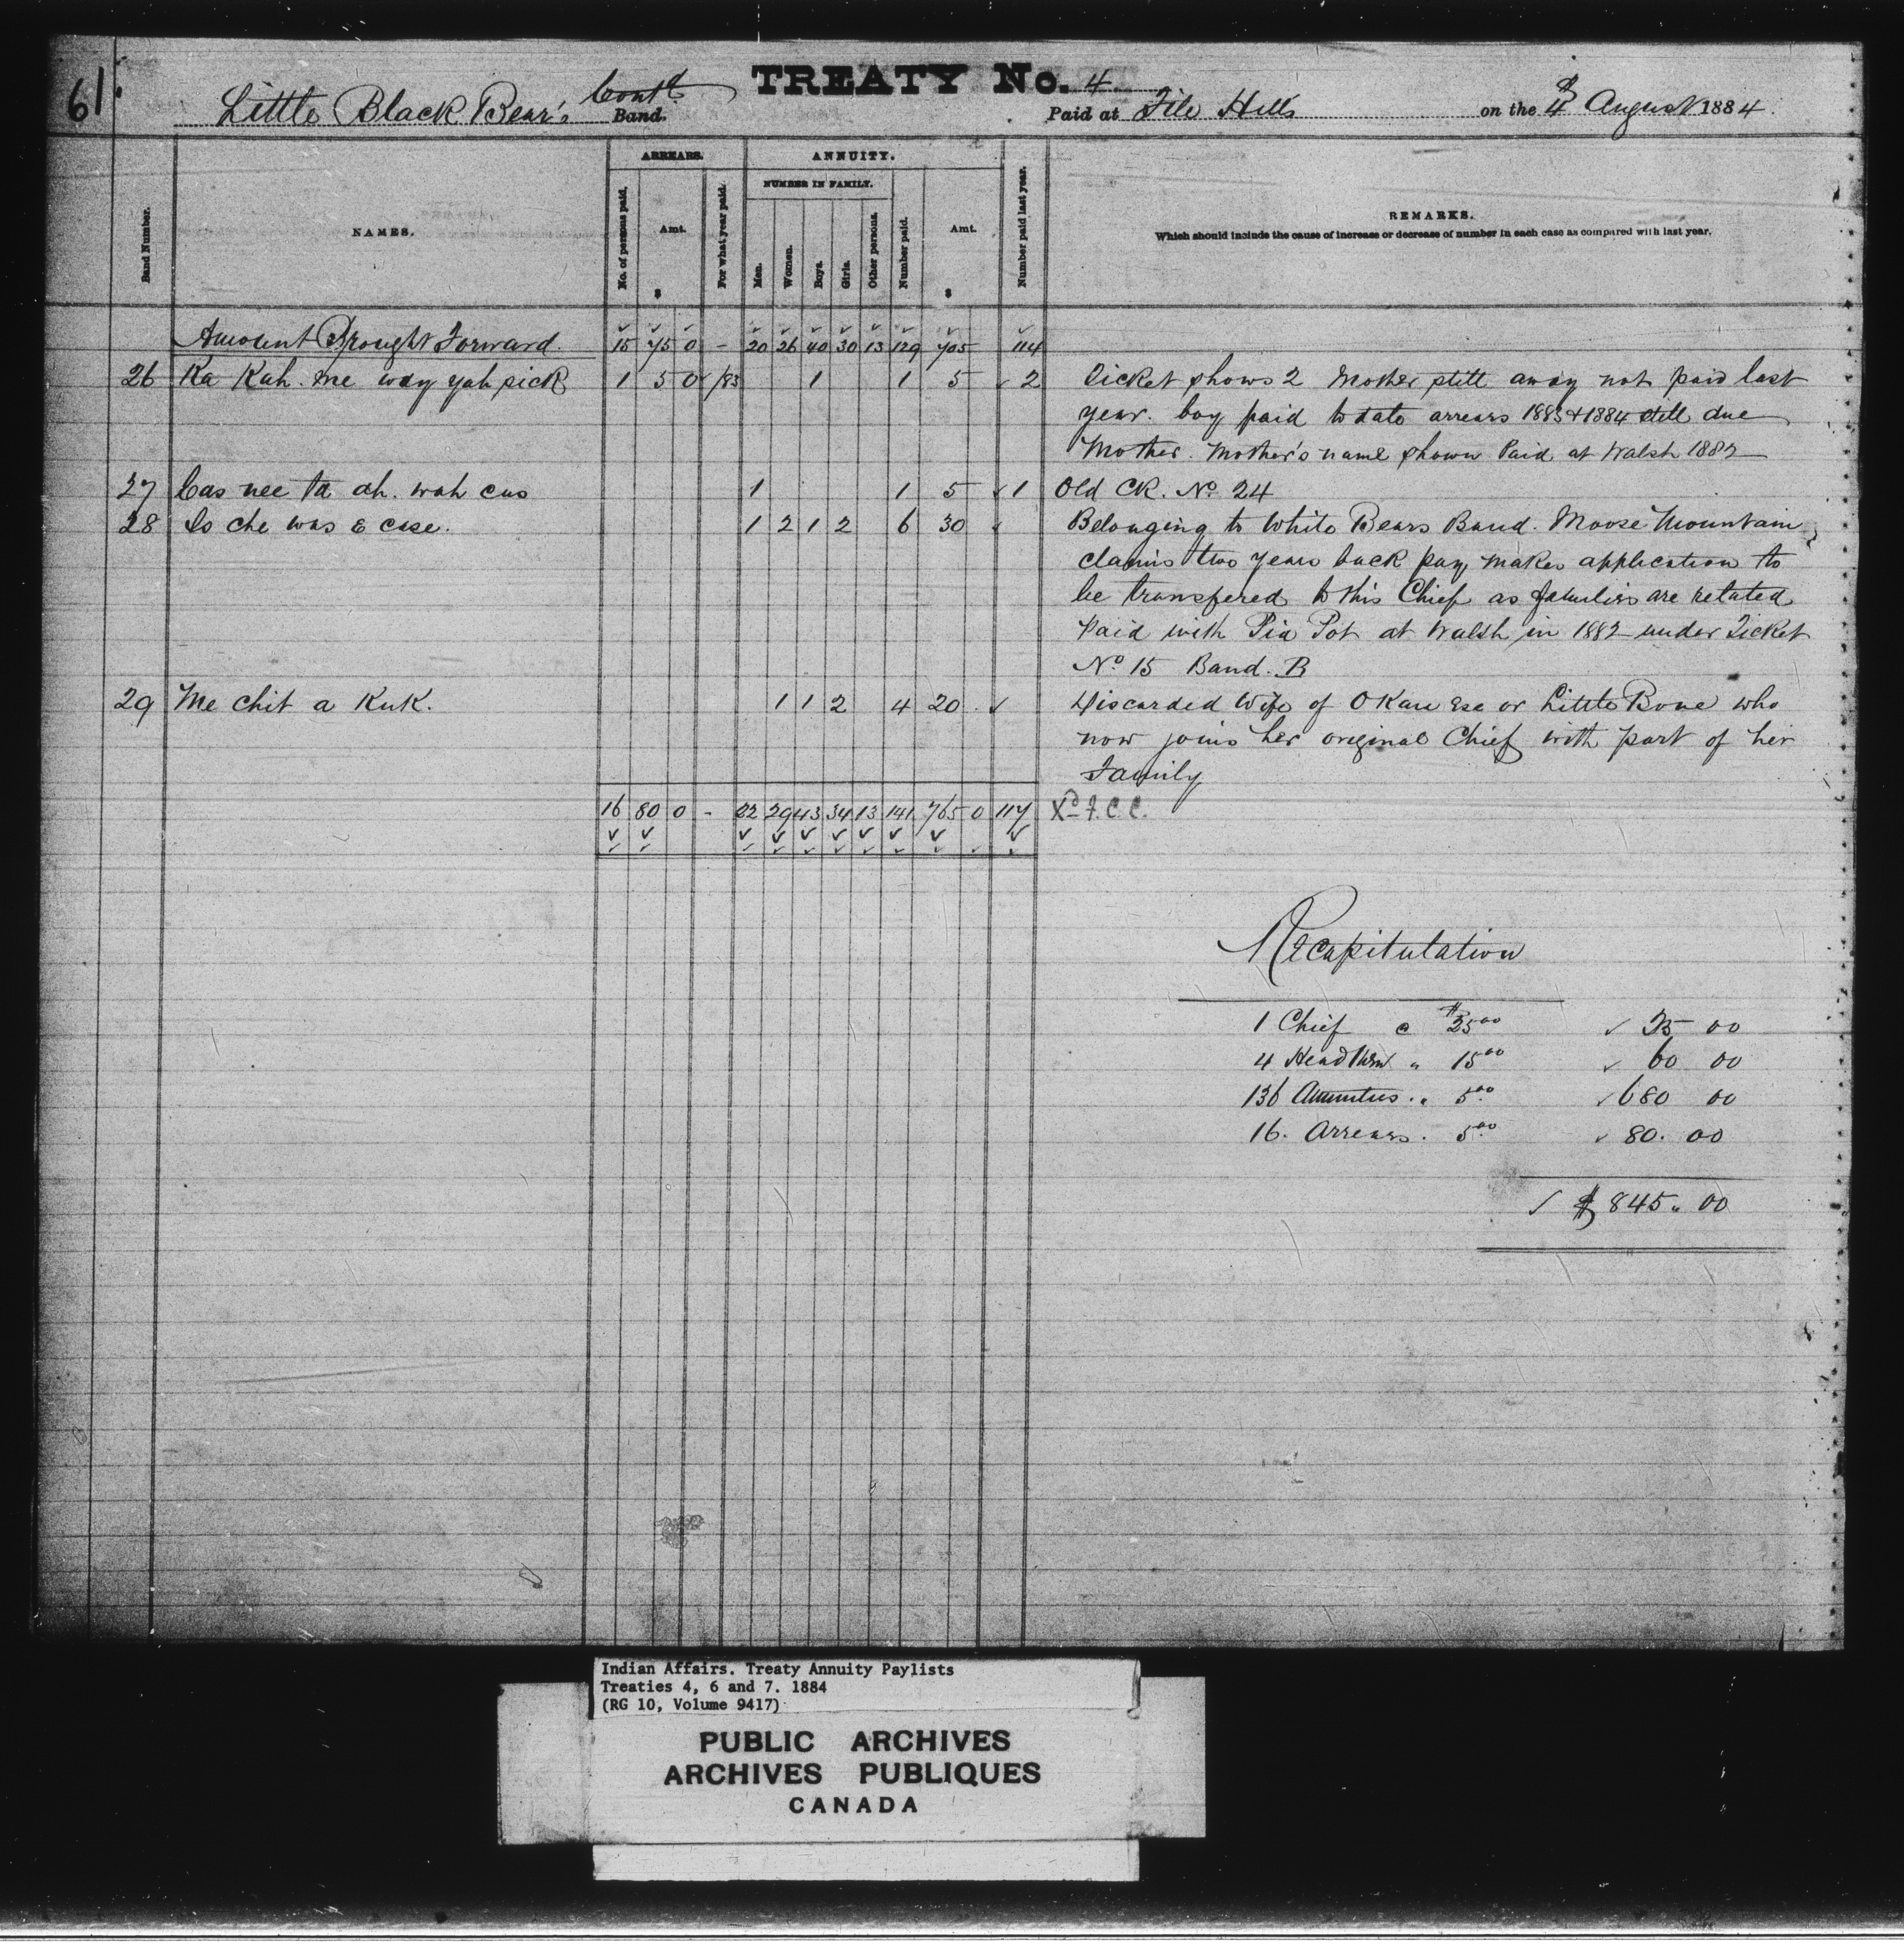 61.
TREATY No. 4
Little Black Bear's Cont'd Band. Paid at File Hills on the 4 August 1884.
Band Number. NAMES. ARREARS. No. of persons paid. Amt. $ For what year paid. ANNUITY. NUMBER IN FAMILY. Men. Women. Boys. Girls. Other persons. Number paid. Amt. $ Number paid last year. REMARKS.
Which should include the cause of increase or decrease of number in each case as compared with last year.
Amount Brought Forward. 15 75 0 - 20 26 40 30 13 129 705 114
26 Ka Kah. me way yah pick 1 5 0 /83 1 1 5 ✓ 2 Ticket shows 2 Mother still away not paid last
year. boy paid to date arrears 1883 & 1884 still due
Mother. Mother's name shown Paid at Walsh 1882
27 Cas nee ta ah. wah cus 1 1 5 ✓ 1 Old CK. No 24
28 Is che was E case. 1 2 1 2 6 30 ✓ Belonging to White Bears Band. Moose Mountain
claims two years back pay, makes application to
be transfered to this Chief as families are related
Paid with Pia Pot at Walsh in 1882 under Ticket
No 15 Band. B
29 Me chit a KuK. 1 1 2 4 20 ✓ Discarded Wife of O Kan Ese or Little Bone who
now joins her original Chief with part of her
Family
16 80 0 - 22 29 43 34 13 141 765 0 117 Xd F.C.C.
Recapitulation
1 Chief @ $25.00 ✓ 25 00
4 Head Men " 15.00 ✓ 60 00
136 Annuities " 5.00 ✓ 680 00
16. Arrears. 5.00 ✓ 80. 00
✓ $ 845. 00
Indian Affairs. Treaty Annuity Paylists
Treaties 4, 6 and 7. 1884
(RG 10, Volume 9417)
PUBLIC ARCHIVES
ARCHIVES PUBLIQUES
CANADA